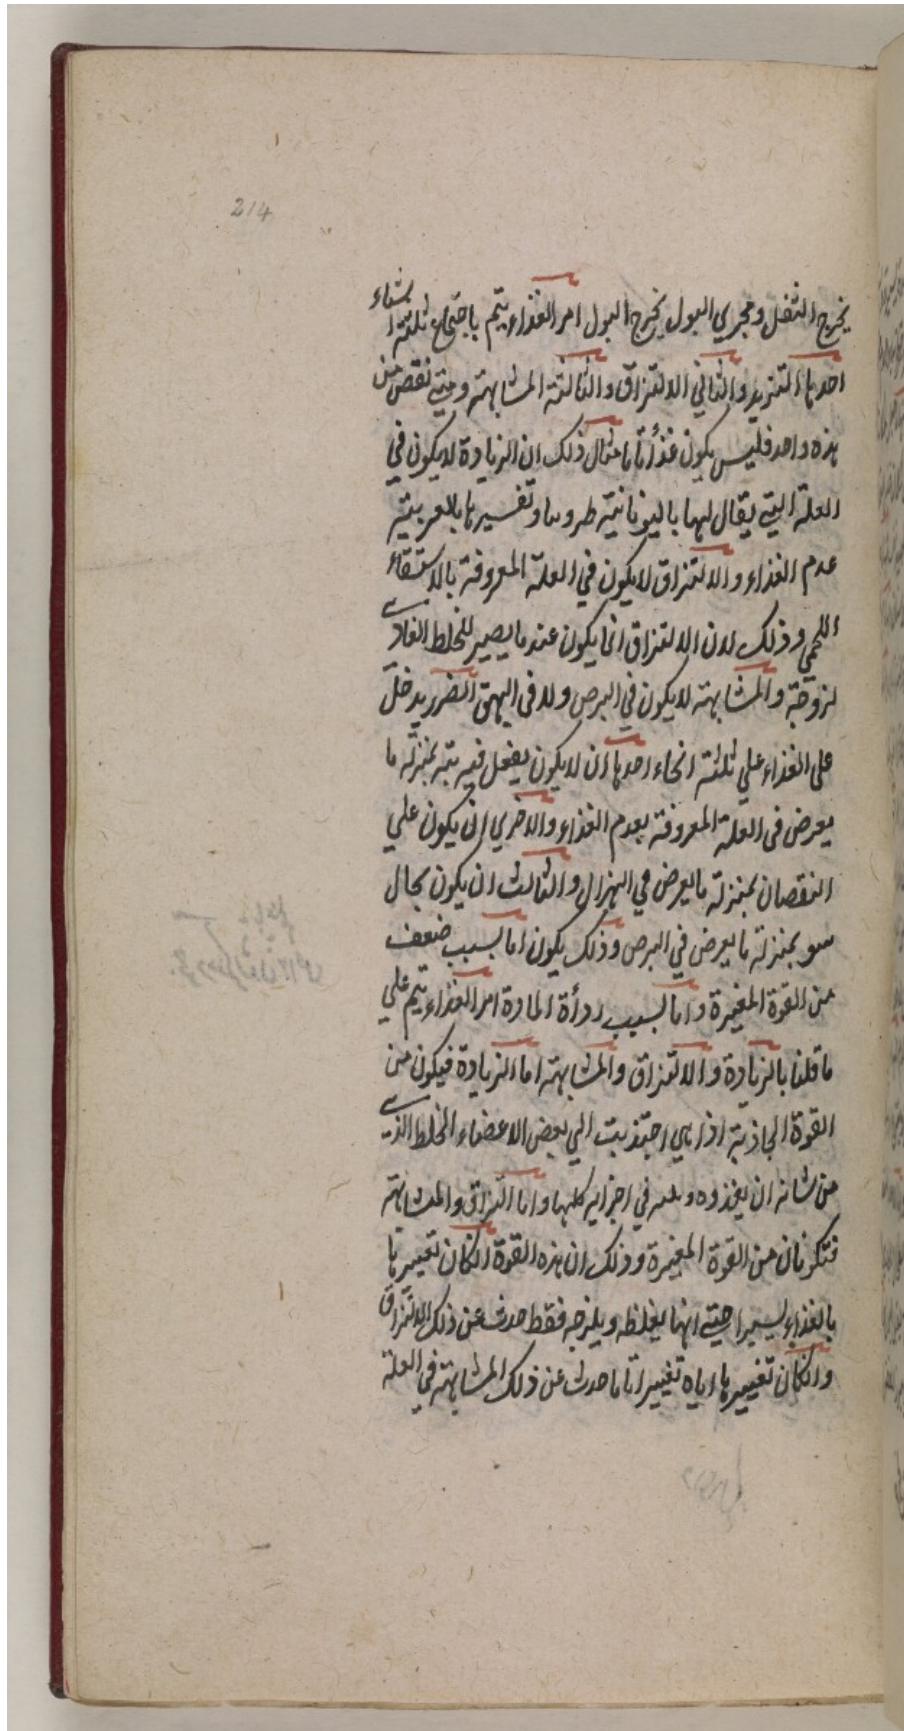 214
يخرج الثفل ومجري البول يخرج البول امر الغذاء يتم باجتماع ثلثة اشياء
احدها التزيد والثاني الالتزاق والثالثة المشابهة ومتي نقص من
هذه واحد فليس يكون غذأ تاما مثال ذلك ان الزيادة لا يكون في
العلة التي يقال لها باليونانية وتفسيرها بالعربية
عدم الغذاء والالتزاق لا يكون في العلة المعروفة بالاستسقاء
اللحمي وذلك لان الالتزاق انما يكون عندما يصير للخلط الغاذي
لزوجة والمشابهة لا يكون في البرص ولا في البهق الضرر يدخل
علي الغذاء علي ثلثة انحاء احدها ان لا يكون يفعل فيه بتة بمنزلة ما
يعرض في العلة المعروفة بعدم الغذاء والاخري ان يكون علي
النقصان بمنزلة ما يعرض في الهزال والثالث ان يكون بحال
سو بمنزلة ما يعرض في البرص وذلك يكون اما بسبب ضعف
من القوة المغيرة واما بسبب ردأة المادة امر الغذاء يتم علي
ما قلنا بالزيادة والالتزاق والمشابهة اما الزيادة فيكون من
القوة الجاذبة اذا هي اجتذبت الي بعض الاعضاء الخلط الذي
من شانه ان يغذوه في اجزايه كلها واما التزاق والمشابهة
فتكونان من القوة المغيرة وذلك ان هذه القوة انكان تغييرها
بالغذاء يسيرا حتي انها يغلظه ويلزجه فقط حدث عن ذلك الالتزاق
وانكان تغييرها اياه تغييرا تاما حدث عن ذلك المشابهة في العلة